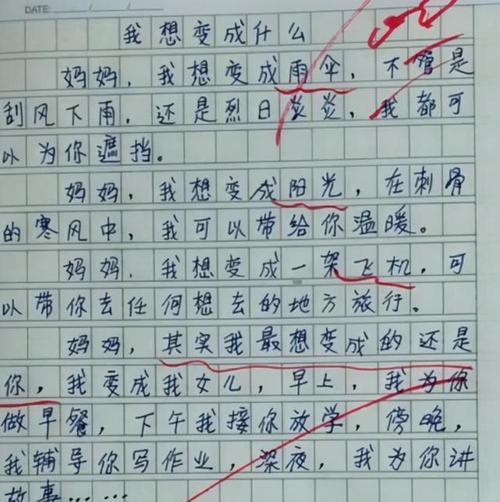 DATE:
我想变成什么
妈妈，我想变成雨伞，不管是
刮风下雨，还是烈日炎炎，我都可
以为你遮挡。
妈妈，我想变成阳光，在刺骨
的寒风中，我可以带给你温暖。
妈妈，我想变成一架飞机，可
以带你去任何想去的地方旅行。
妈妈，其实我最想变成的还是
你，我变成我女儿，早上，我为你
做早餐，下午我接你放学，傍晚，
我辅导你写作业，深夜，我为你讲
故事……